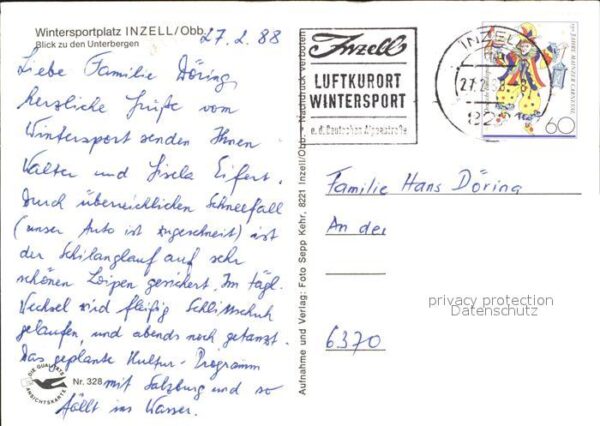 Wintersportplatz INZELL/Obb.
Blick zu den Unterbergen
27.2.88
Liebe Familie Döring,
herzliche Grüße vom
Wintersport senden Ihnen
Walter und Gisela Eifert.
Durch überreichlichen Schneefall
(unser Auto ist zugeschneit) ist
der Schilanglauf auf sehr
schönen Loipen gesichert. Im tägl.
Wechsel wird fleißig Schlittschuh
gelaufen, und abends noch getanzt.
Das geplante Kultur-Programm
mit Salzburg und so
fällt ins Wasser.
DIE QUALITÄTS
ANSICHTSKARTE
Nr. 328
Aufnahme und Verlag: Foto Sepp Kehr, 8221 Inzell/Obb. - Nachdruck verboten
Inzell
LUFTKURORT
WINTERSPORT
a. d. Deutschen Alpenstraße
INZELL
27.2.88-8
822
150 JAHRE MAINZER CARNEVAL
60
Familie Hans Döring
An der
6370
privacy protection
Datenschutz